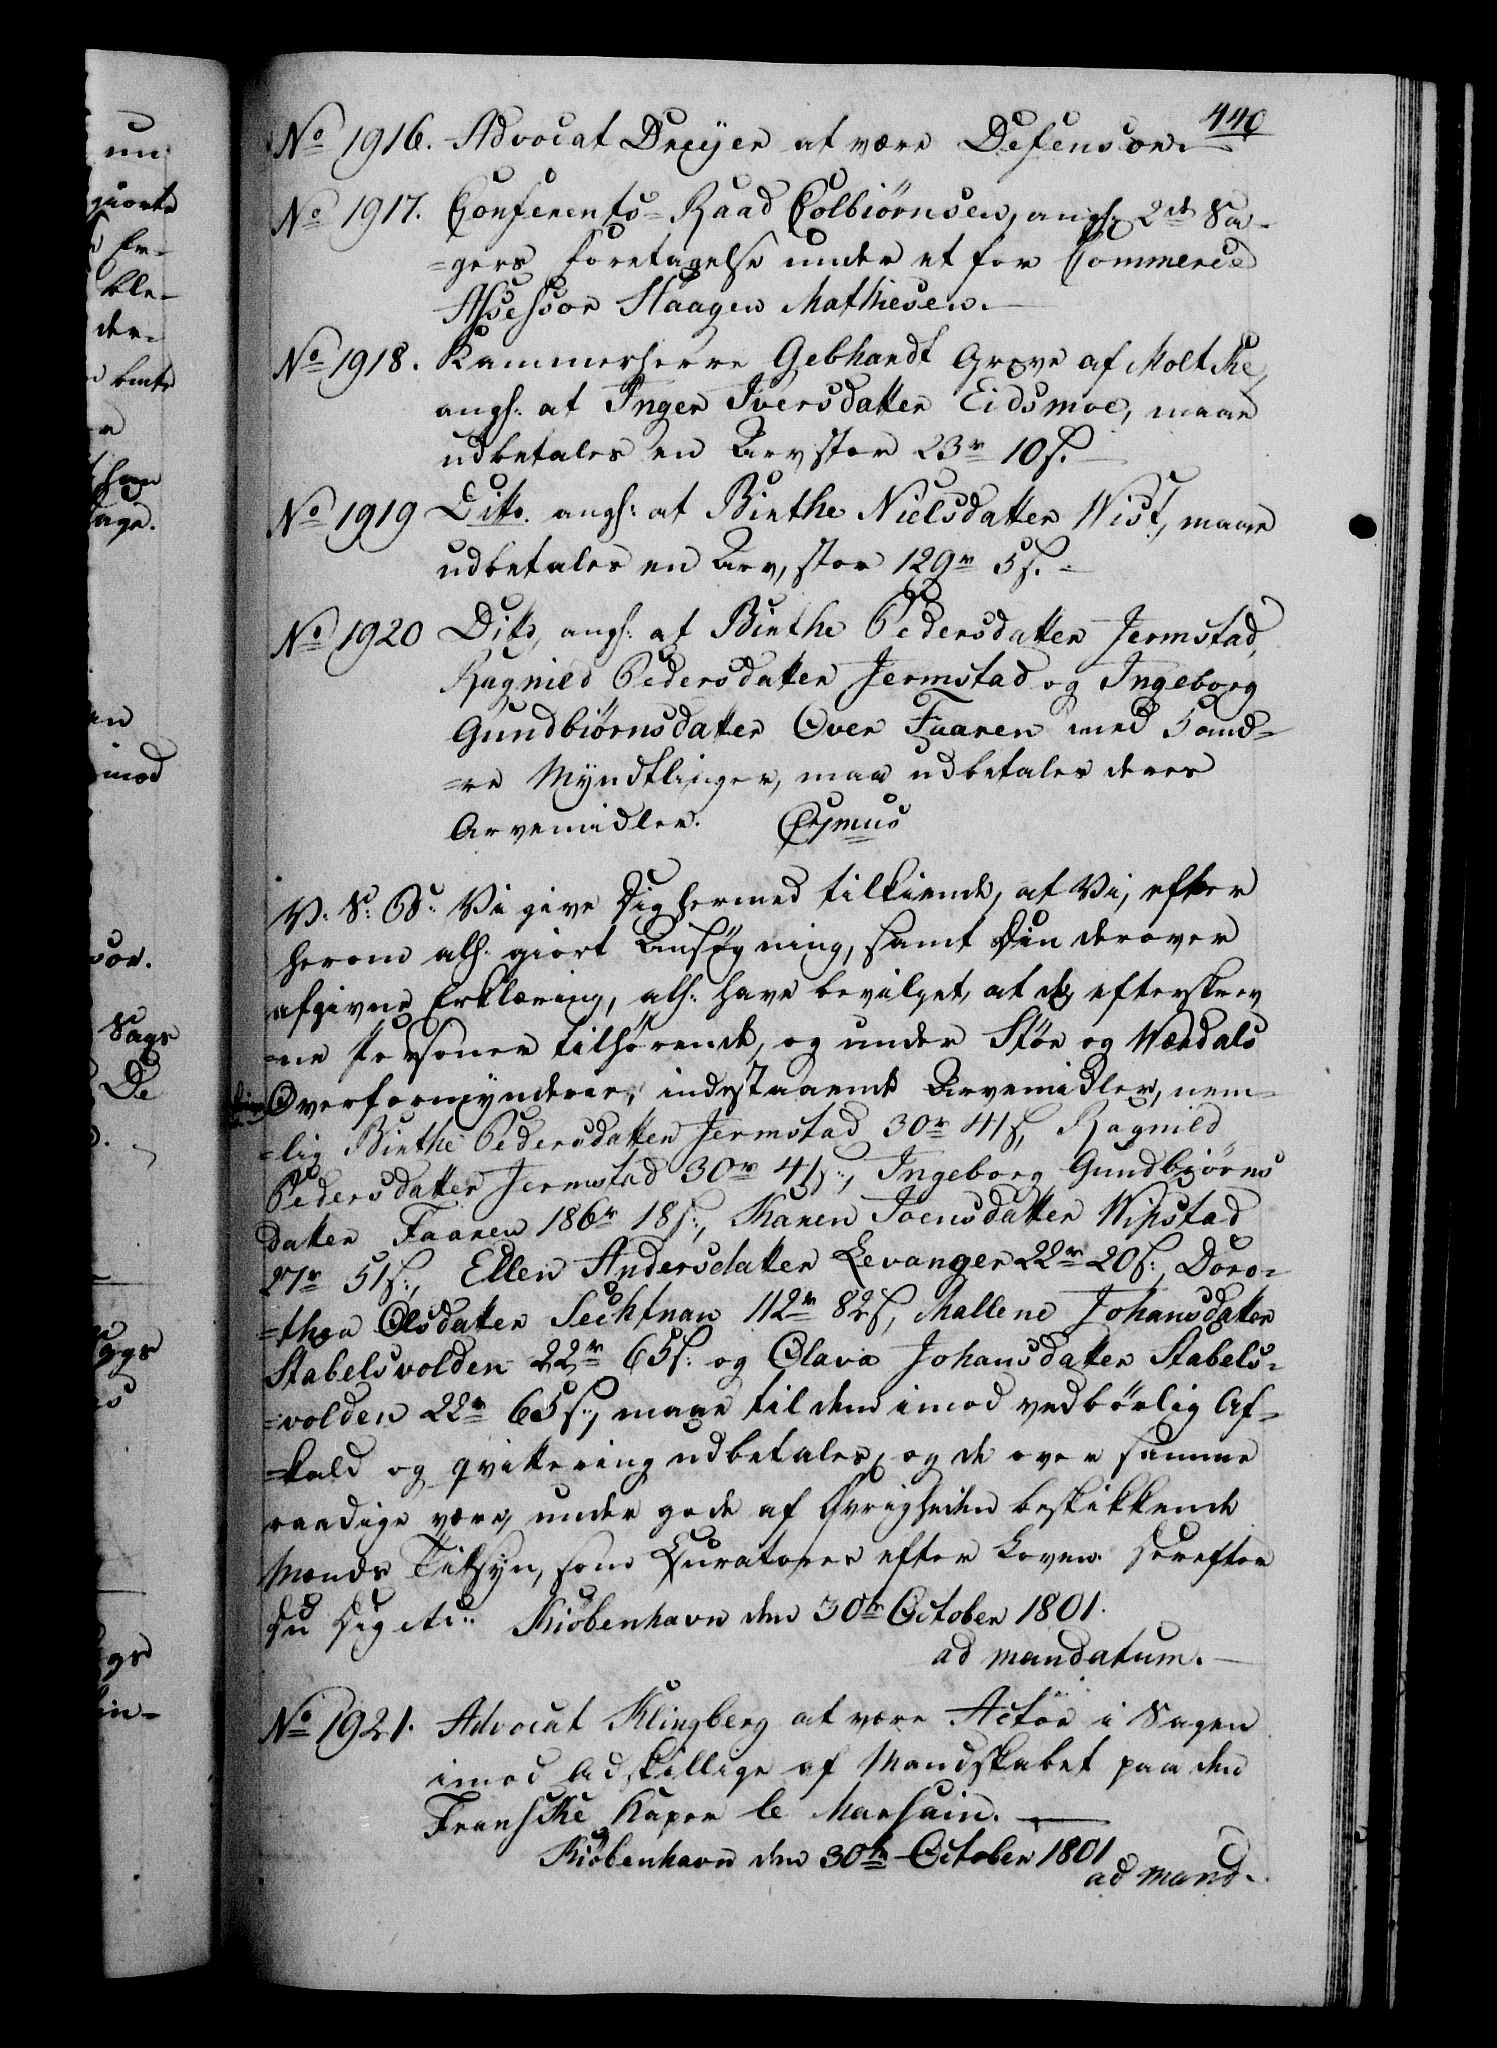 440
No 1916. Advocat Dreÿer at være Defensor.
No 1917. Conferents-Raad Colbiørnsen, angl: 2de Sa-
=gers foretagelse under et for Commerce
Assessor Haagen Mathiesen.
No 1918. Kammerherre Gebhardt Greve af Moltke,
angl: at Inger Iversdatter Eidsmoe, maae
udbetales en Arv stor 23r 10s.
No 1919 Dito. angl: at Birthe Nielsdatter Wist, maae
udbetales en Arv, stor 129r 5s.
No 1920 Dito, angl: at Birthe Pedersdatter Jermstad,
Ragnild Pedersdatter Jermstad og Ingeborg
Gundbiørnsdatter Over Faaren med 5 and-
=re Myndtlinger, maa udbetales deres
Arvemidler.
V: S: G: Vi give Dig hermed tilkiende, at Vi, efter
herom all: giort Ansøgning, samt Din derover
afgivne Erklæring, all: have bevilget, at de, efterskrev
=ne Personer tilhørende, og under Stør og Værdals
Overformynderie, indestaaende Arvemidler, nem-
=lig Birthe Pedersdatter Jermstad 30r 41s, Ragnild
Pedersdatter Jermstad 30r 41s:, Ingeborg Gundbjørns
datter Faaren 186r 18s:, Karen Joensdatter Wipstad
27r 51s:, Ellen Andersdatter Levanger 22r 20s:, Doro-
=thea Olsdatter Sechtnan 112r 82s, Mallene Johansdatter
Stabelsvolden 22r 65s: og Olava Johansdatter Stabels-
=volden 22r 65s:, maae til dem imod vedbörlig Af-
=kald og qvittering udbetales, og de over samme
raadige være, under gode af Øvrigheden beskikkende
Mænds Tilsyn, som Curatorer efter Loven. Derefter
Du Dig etc: Kiöbenhavn den 30te October 1801.
ad mandatum.
No 1921. Advocat Klingberg at være Actor i Sagen
imod Adskillige af Mandskabet paa den
Franske Kaper le Marsuin.
Kiöbenhavn den 30te October 1801
ad mand.